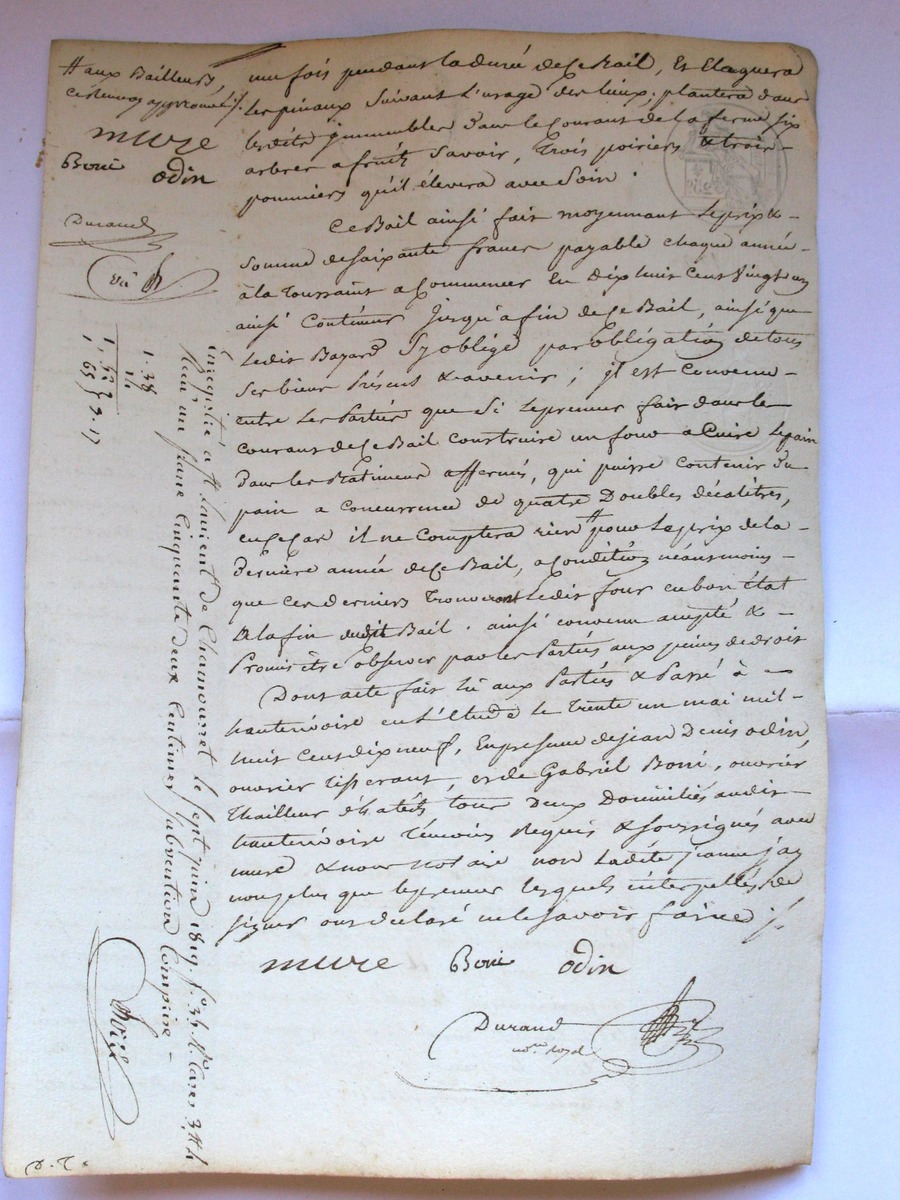 # aux Bailleurs,
ces termes approuvés ./.
mure
Boni odin
Durand
un fois pendant la durée de Ce Bail, Et Elaguera
les pinaux Suivant L'usage des lieux; plantera dans
lesdits jmmeubles dans le Courant de la ferme six
arbres a fruits Savoir, Trois poiriers & trois
pommiers qu'il élevera avec Soin.
Ce Bail ainsi fait moyennant Le prix &
Somme de Soixante francs payable chaque année
à la Toussaint a Commencer En Dix huit Cent Vingt
ainsi Continuer Jusqu'a fin de Ce Bail, ainsi que
Ledit Bayard S'y oblige par obligation de tous
Ses biens Présents & avenir; jl est Convenu
entre Les Parties que Si Le preneur fait dans le
Courant de Ce Bail Construire un four a Cuire Le pain
Dans les Batimens affermés, qui puisse Contenir Du
pain a Concurrence de quatre Doubles décalitres,
en Ce Cas il ne Comptera rien # pour Le prix de la
Derniere année de Ce Bail, a Condition néanmoins
que Ces derniers Trouveront Ledit four en bon État
a la fin dudit Bail. ainsi convenu accepté &
Promis être observer par les Parties aux peines de droit
Dont acte fait Lû aux Parties & Passé à
hauterivoire en L'Etude Le Trente un mai mil
huit Cent dix neuf, En presence de jean Denis odin,
ouvrier Tisserant, et de Gabriel Boni, ouvrier
Thailleur d'habits, tous Deux Domiciliés audit
hauterivoire Témoins Requis & soussignés avec
mure & nous notaire non Ladite jeanne jay
non plus que le preneur lesquels interpellés de
signer ont declaré ne le savoir faire ./.
mure Boni odin
Durand
not.re royal
Enregistré à St Laurent de Chamousset le sept juin 1819. f.o 35. R.o
Reçu un franc Cinquante deux Centimes subvention Comprise
1. 38
1. 52
1. 65
3. 17